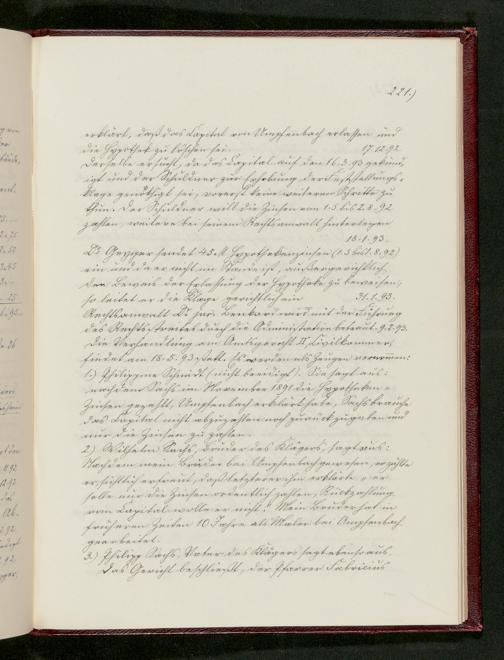 221.)
erklärt, daß das Capital von Umpfenbach erlassen und
die Hypothek zu löschen sei. 17.12.92
Derselbe ersucht, da das Capital auf den 16.3.93 gekün-
igt und der Schuldner zur Erhebung der Feststellungs-
klage genöthigt sei, vorerst keine weiteren Schritte zu
thun. Der Schuldner will die Zinsen vom 1.5 bis 2.8.92
zahlen, weitere bei seinem Rechtsanwalt hinterlegen
18.1.93.
Dr. sendet 45 M Hypothekenzinsen (1.5 bis 1.8.92)
ein und da er nicht im Stande ist, außergerichtlich
den Beweis der Erlassung der Hypothek zu beweisen,
so leitet er die Klage gerichtlich ein 31.1.93.
Rechtsanwalt Dr jur. wird mit der Führung
des Rechtsstreites durch die Administration betraut. 9.2.93.
Die Verhandlung am Amtsgericht II Civilkammer,
findet am 18.5.93 statt. Es werden als Zeugen vernommen:
1.) Philippine Schmidt (nicht beeidigt). Sie sagt aus:
nachdem Sachs im November 1891 die Hypotheken-
Zinsen gezahlt, Umpfenbach erklärt habe, Sachs brauche
das Capital nicht abzuzahlen noch zurückzugeben und
nur die Zinsen zu zahlen.
2.) Wilhelm Sachs, Bruder des Klägers, sagt aus:
Nachdem mein Bruder bei Umpfenbach gewesen, erzählte
er sichtlich erfreut, daß letzterer ihm erklärte, er
solle nur die Zinsen ordentlich zahlen, Rückzahlung
von Capital wolle er nicht. Mein Bruder hat in
früheren Zeiten 10 Jahre als Maler bei Umpfenbach
gearbeitet.
3.) Philipp Sachs, Vater des Klägers sagt ebenso aus.
Das Gericht beschließt, der Pfarrer Fabricius